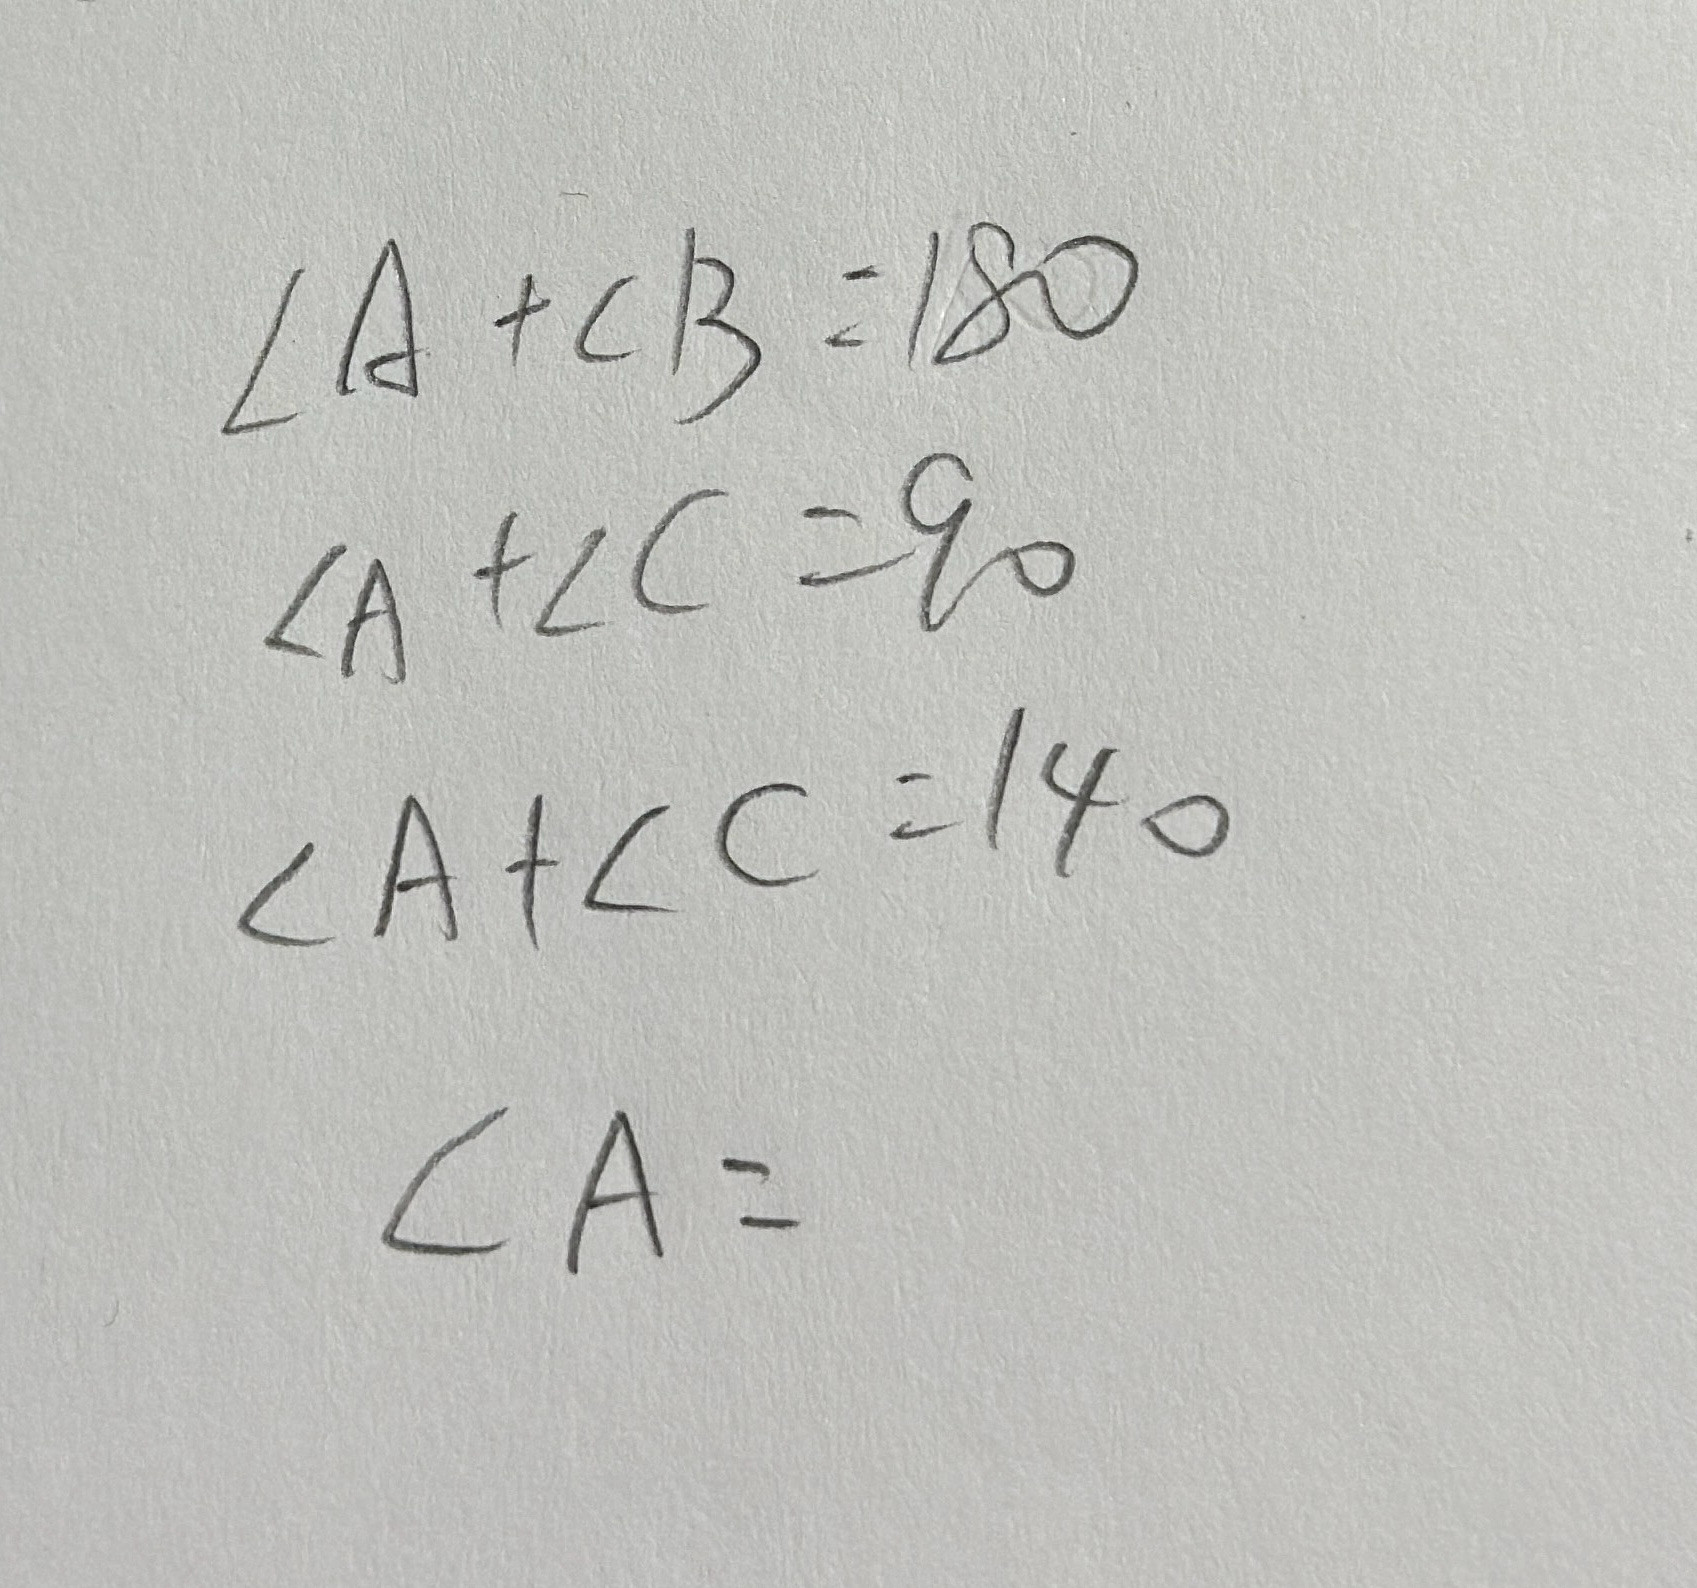 ∠A+∠B=180
∠A+∠C=90
∠A+∠C=140
∠A=